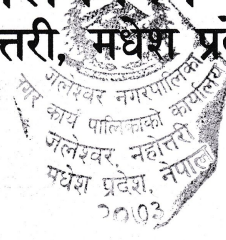 त्तरी, मधेश प्र
जलेश्वर नगरपालिका
नगर कार्य पालिकाको कार्यालय
जलेश्वर, महोत्तरी
मधेश प्रदेश, नेपाल
२०७३